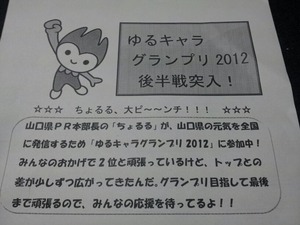 ゆるキャラ
グランプリ2012
後半戦突入！
☆☆☆ ちょるる、大ピ～～ンチ！！！ ☆☆☆
山口県ＰＲ本部長の「ちょるる」が、山口県の元気を全国
に発信するため「ゆるキャラグランプリ2012」に参加中！
みんなのおかげで２位と頑張っているけど、トップとの
差が少しずつ広がってきたんだ。グランプリ目指して最後
まで頑張るので、みんなの応援を待ってるよ！！